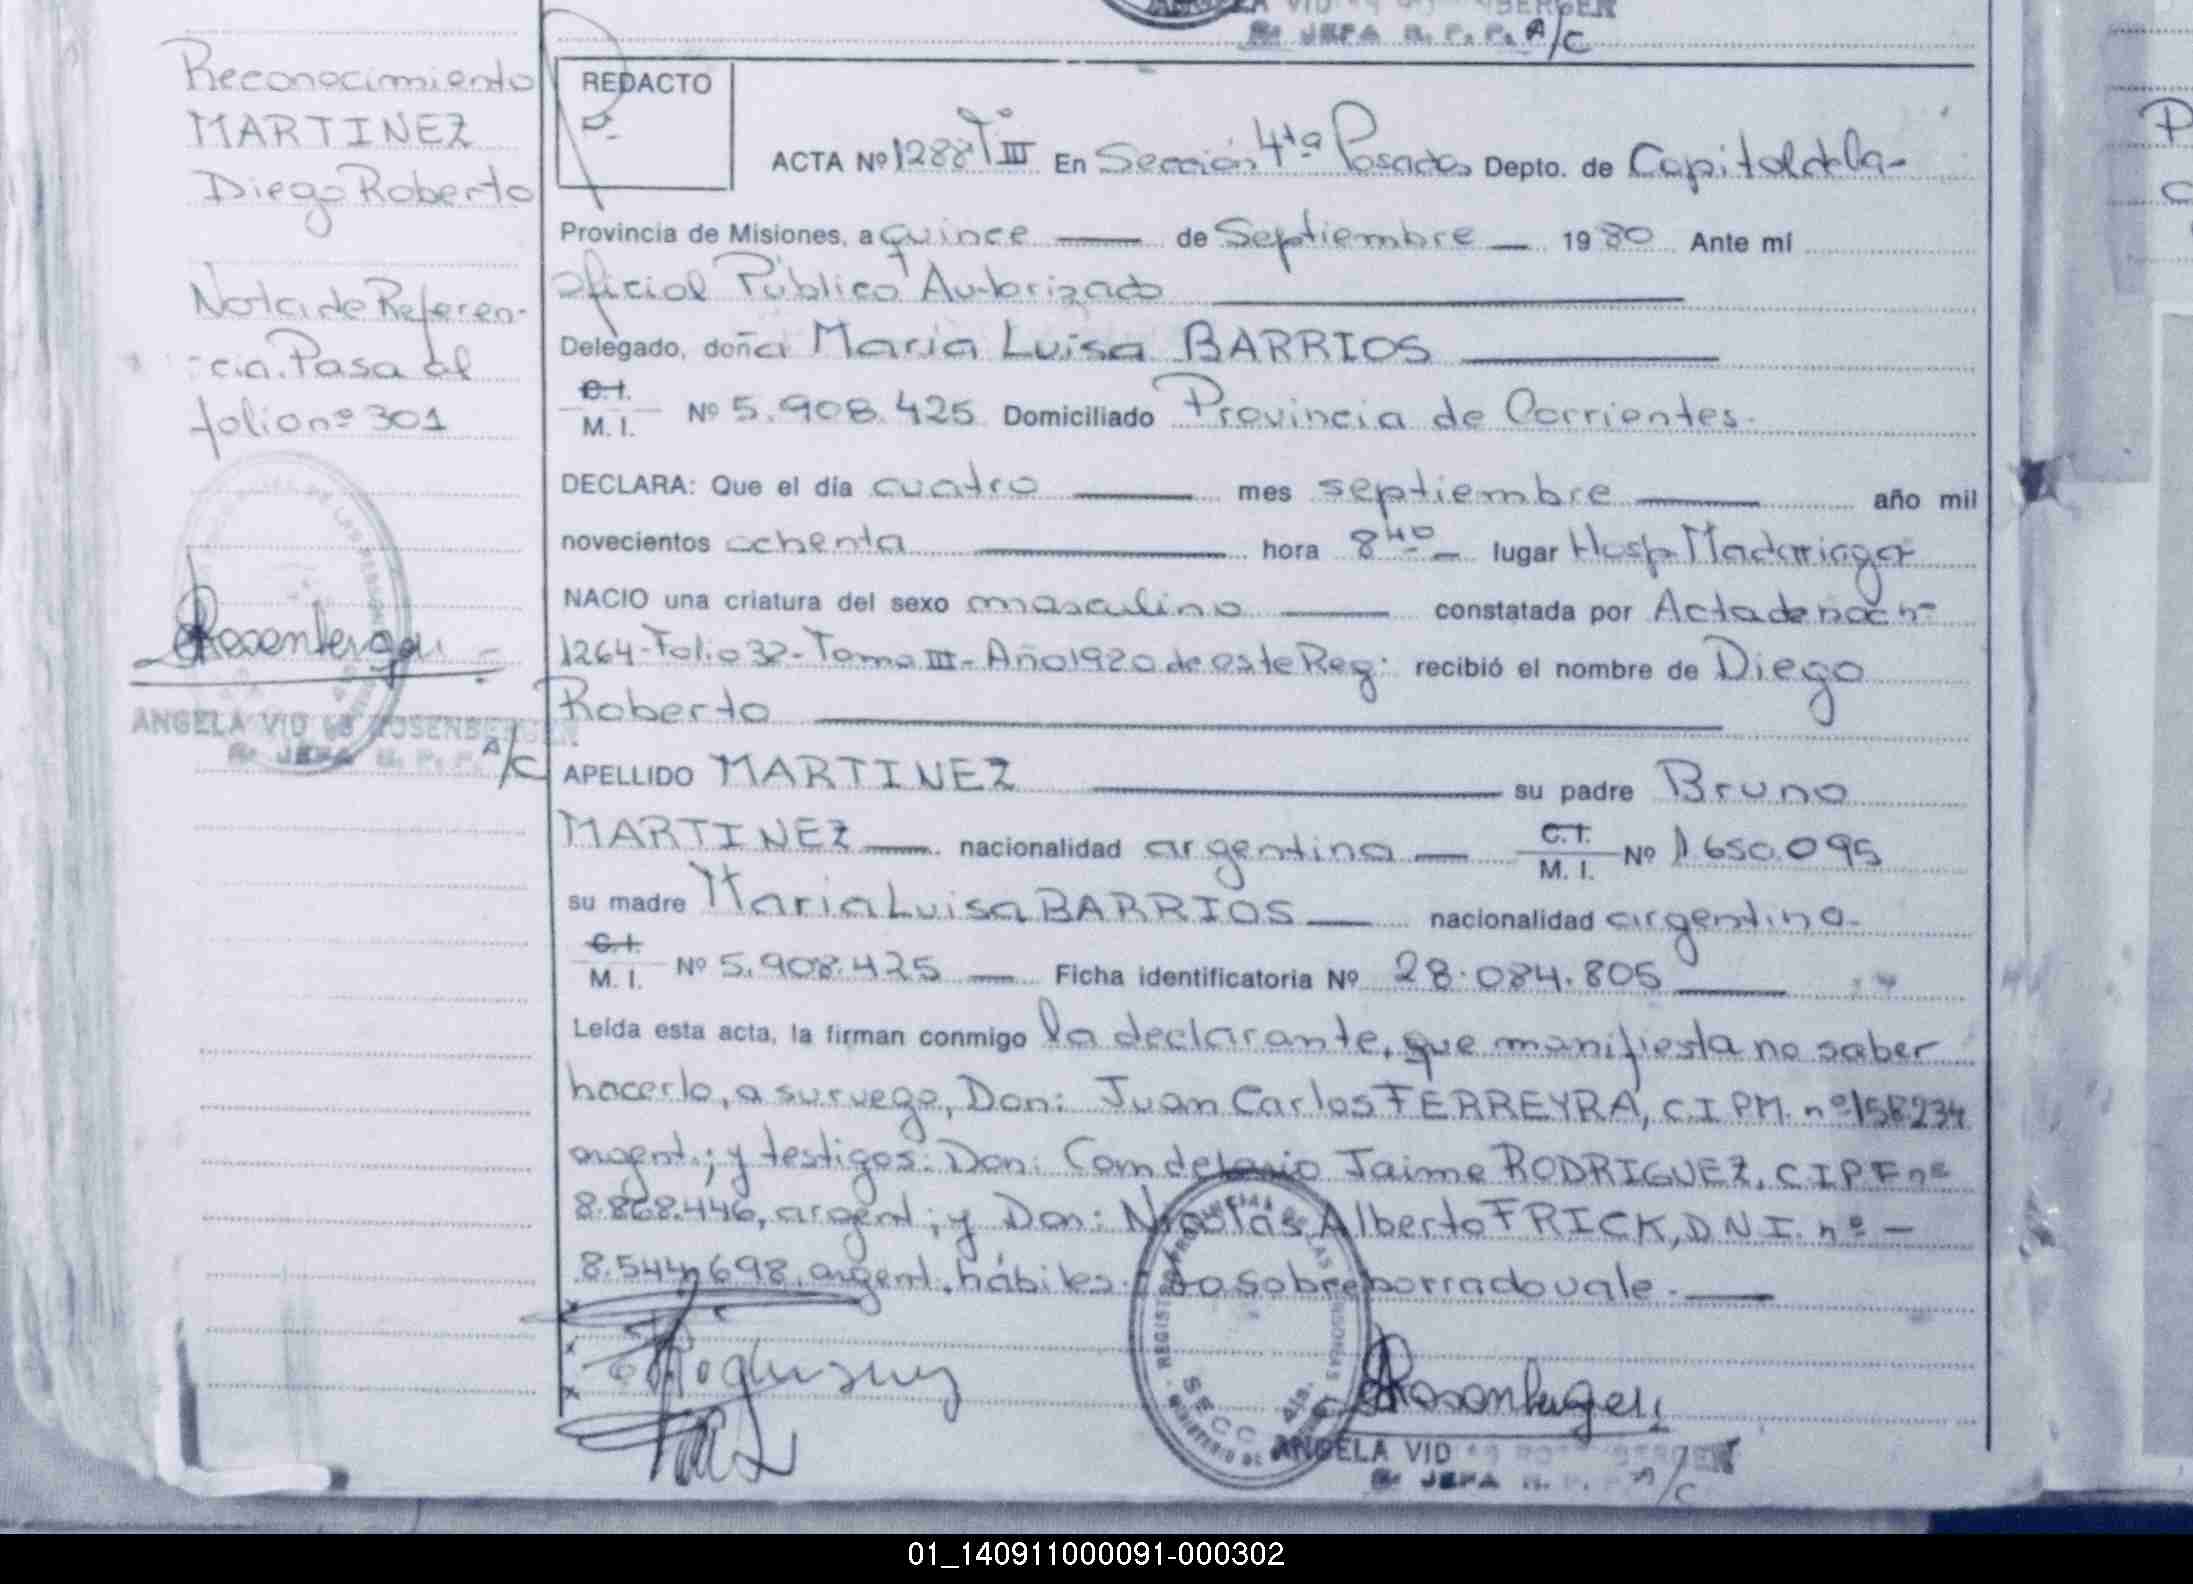 ANGELA VID
JEFA R. P. P. A/C
Reconocimiento
MARTINEZ
Diego Roberto
Nota de Referen-
cia. Pasa al
folio nº 301
Rosenberger
ANGELA VID de ROSENBERGER
JEFA R. P. P. A/C
REDACTO
ACTA Nº 1288 Tº III En Sección 4ta Posadas Depto. de Capital de la-
Provincia de Misiones, a quince de Septiembre 1980 Ante mí
oficial Público Autorizado
Delegado, doña Maria Luisa BARRIOS
C.I.
M. I. Nº 5.908.425 Domiciliado Provincia de Corrientes.
DECLARA: Que el día cuatro mes septiembre año mil
novecientos ochenta hora 8 40 lugar Hosp Madariaga
NACIO una criatura del sexo masculino constatada por Acta de nac nº
1264-Folio 32-Tomo III-Año 1980 de este Reg: recibió el nombre de Diego
Roberto
APELLIDO MARTINEZ su padre Bruno
MARTINEZ nacionalidad argentina C.I.
M. I. Nº 1650.095
su madre Maria Luisa BARRIOS nacionalidad argentina-
C.I.
M. I. Nº 5.908.425 Ficha identificatoria Nº 28.084.805
Leída esta acta, la firman conmigo la declarante, que manifiesta no saber
hacerlo, a su ruego, Don: Juan Carlos FERREYRA, C.I PM. nº 158234
argent.; y testigos: Don: Candelario Jaime RODRIGUEZ, C.I.P.F nº
8.868.446, argent; y Don: Nicolás Alberto FRICK, D.N.I. nº -
8.544.698, argent, hábiles. sobreborrado vale.
REGISTRO PROVINCIAL DE LAS PERSONAS
SECC 4ta.
Rosenberger
ANGELA VID
JEFA R. P. A/C
01_140911000091-000302